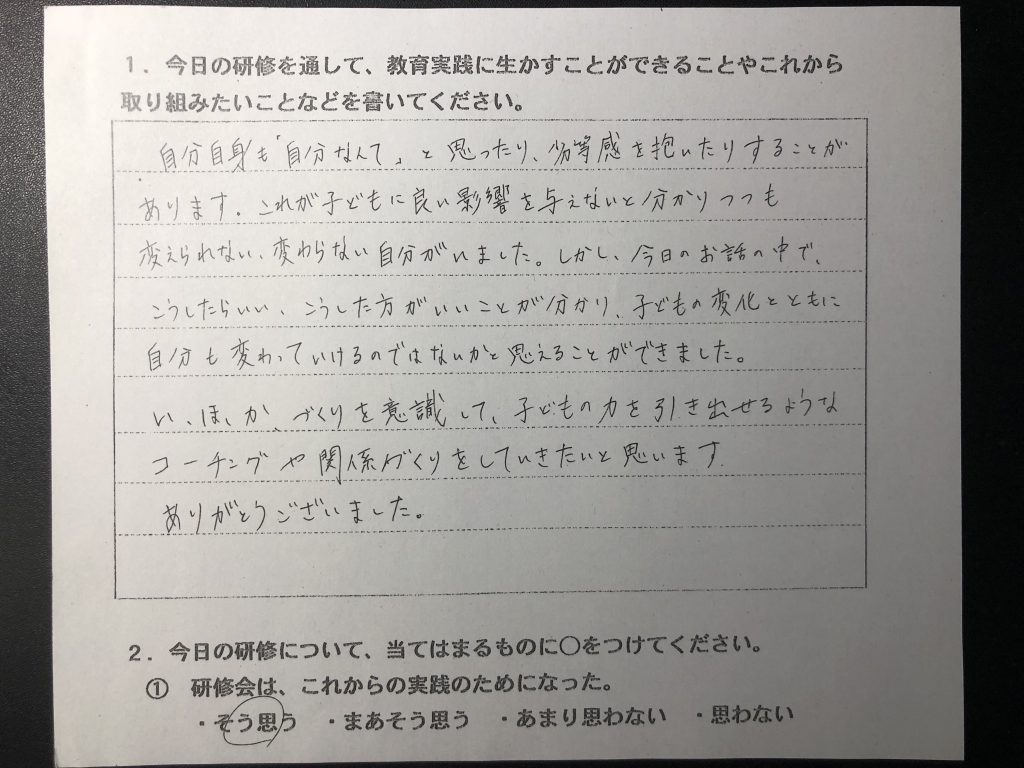 １．今日の研修を通して、教育実践に生かすことができることやこれから
取り組みたいことなどを書いてください。
自分自身も「自分なんて」と思ったり、劣等感を抱いたりすることが
あります。これが子どもに良い影響を与えないと分かりつつも
変えられない、変わらない自分がいました。しかし、今日のお話の中で、
こうしたらいい、こうした方がいいことが分かり、子どもの変化とともに
自分も変わっていけるのではないかと思えることができました。
い、ほ、か、づくりを意識して、子どもの力を引き出せるような
コーチングや関係づくりをしていきたいと思います
ありがとうございました。
２．今日の研修について、当てはまるものに〇をつけてください。
① 研修会は、これからの実践のためになった。
・そう思う ・まあそう思う ・あまり思わない ・思わない